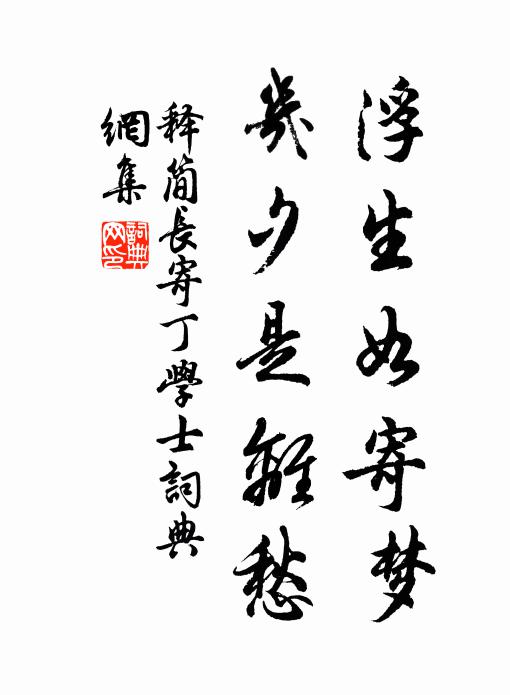 浮生如寄梦
幾夕是離愁
释简長寄丁學士詞典
網集
詞典
网印